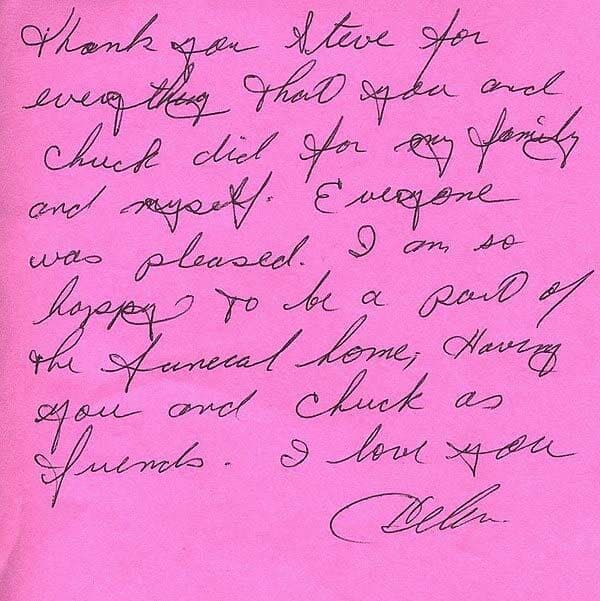 Thank you Steve for
everything that you and
Chuck did for my family
and myself. Everyone
was pleased. I am so
happy to be a part of
the funeral home, Having
you and Chuck as
friends. I love you